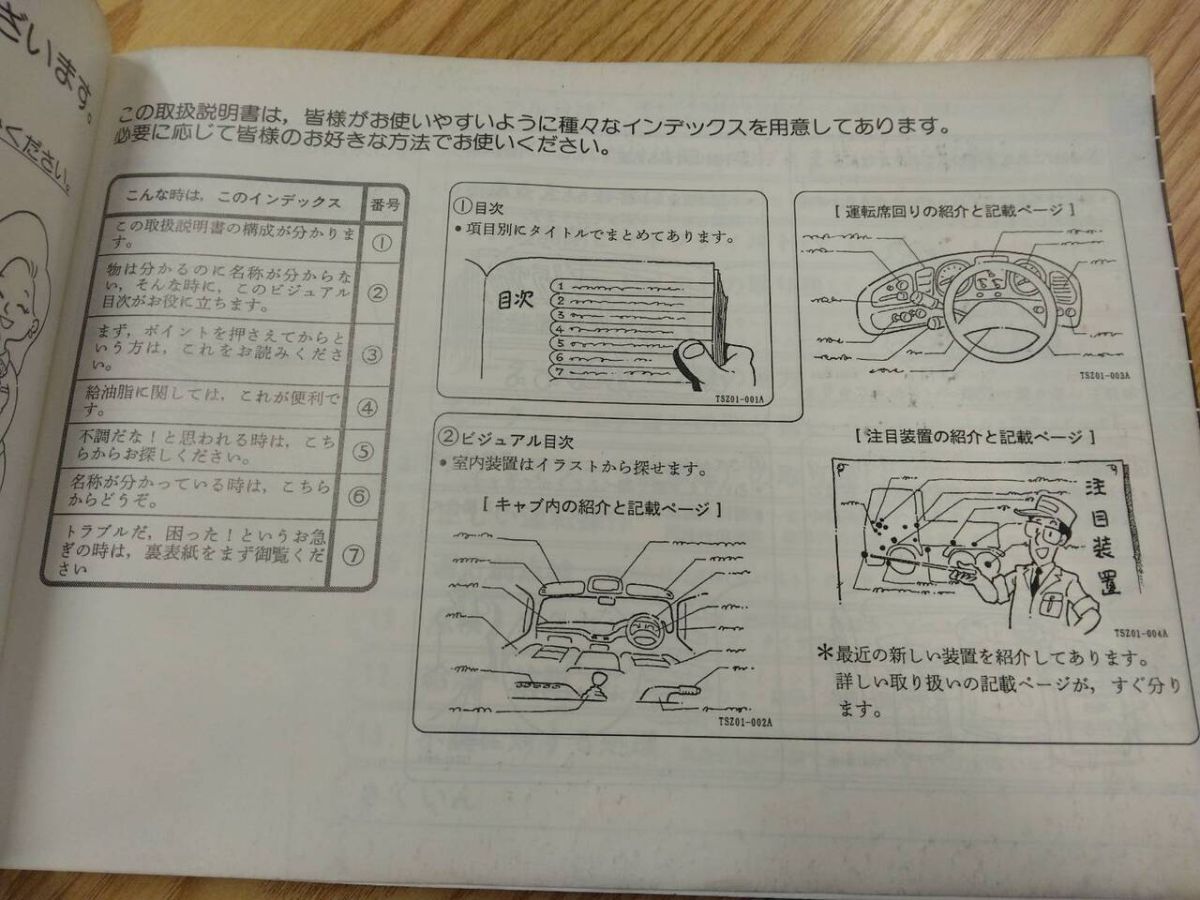 ざいます。
ください。
この取扱説明書は，皆様がお使いやすいように種々なインデックスを用意してあります。
必要に応じて皆様のお好きな方法でお使いください。
こんな時は，このインデックス
番号
この取扱説明書の構成が分かりま
す。
①
物は分かるのに名称が分からな
い，そんな時に，このビジュアル
目次がお役に立ちます。
②
まず，ポイントを押さえてからと
いう方は，これをお読みくださ
い。
③
給油脂に関しては，これが便利で
す。
④
不調だな！と思われる時は，こち
らからお探しください。
⑤
名称が分かっている時は，こちら
からどうぞ。
⑥
トラブルだ，困った！というお急
ぎの時は，裏表紙をまず御覧くだ
さい
⑦
①目次
•項目別にタイトルでまとめてあります。
目次
1
2
3
4
5
6
7
TSZ01-001A
②ビジュアル目次
•室内装置はイラストから探せます。
[ キャブ内の紹介と記載ページ ]
TSZ01-002A
[ 運転席回りの紹介と記載ページ ]
TSZ01-003A
[ 注目装置の紹介と記載ページ ]
注目装置
TSZ01-004A
＊最近の新しい装置を紹介してあります。
詳しい取り扱いの記載ページが，すぐ分り
ます。